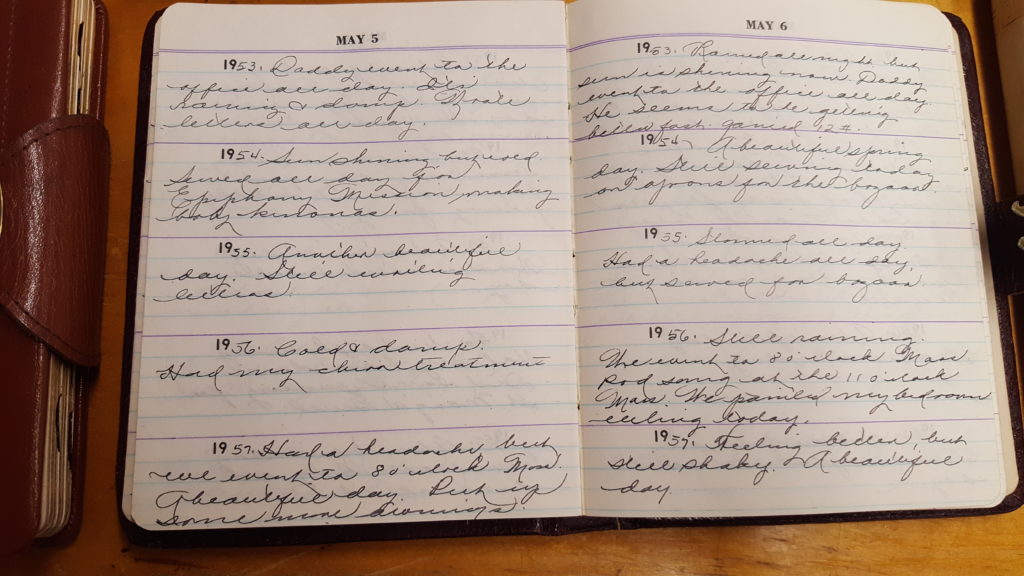 MAY 5
1953. Daddy went to the
office all day. It's
raining & damp. Wrote
letters all day.
1954. Sun shining but cold.
Sewed all day for
Epiphany Mission, making
baby kimonas.
1955. Another beautiful
day. Still writing
letters.
1956. Cold & damp.
Had my chiro treatment
1957. Had a headache, but
we went to 8 o'clock Mass.
A beautiful day. Put up
some more awnings.
MAY 6
1953. Rained all night but
sun is shining now. Daddy
went to the office all day.
He seems to be getting
better fast. Gained 12#.
1954. A beautiful spring
day. Still sewing today
on aprons for the bazaar
1955. Stormed all day
Had a headache all day,
but sewed for bazaar.
1956. Still raining.
We went to 8 o'clock Mass
Rod sang at the 11 o'clock
Mass. We painted my bedroom
ceiling today.
1957. Feeling better, but
still shaky. A beautiful
day.